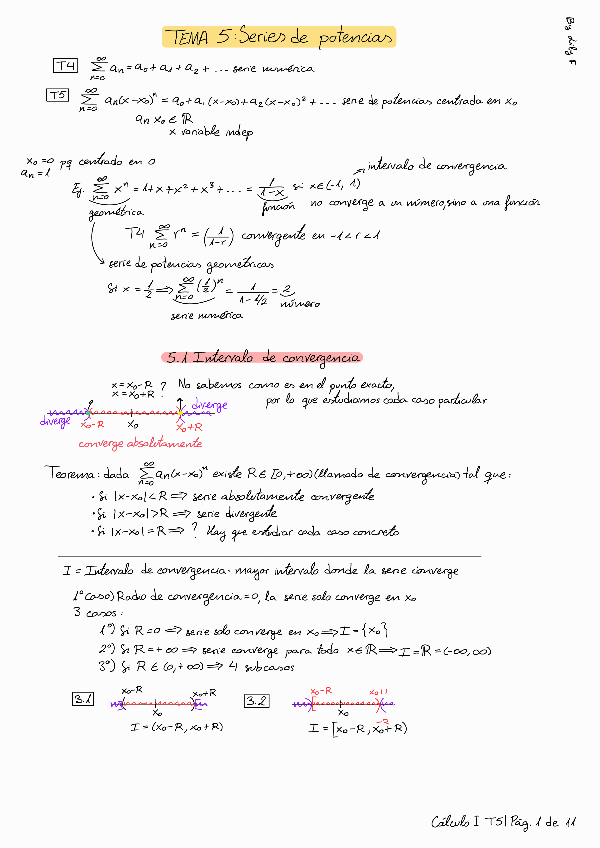 By Lidy F
TEMA 5: Series de potencias
T4 ∞ Σ n=0 an = a0 + a1 + a2 + ... serie numérica
T5 ∞ Σ n=0 an(x-x0)^n = a0 + a1(x-x0) + a2(x-x0)² + ... serie de potencias centrada en x0
an x0 ∈ ℝ
x variable indep
x0=0 pq centrado en 0
an=1
intervalo de convergencia
Ej. ∞ Σ n=0 x^n = 1+x+x²+x³+... = 1/(1-x) si x∈(-1, 1)
geométrica función no converge a un número, sino a una función
T4 ∞ Σ n=0 r^n = (1/(1-r)) convergente en -1<r<1
serie de potencias geométricas
Si x = 1/2 ⇒ ∞ Σ n=0 (1/2)^n = 1/(1-1/2) = 2
número
serie numérica
5.1 Intervalo de convergencia
x=x0-R ? No sabemos como es en el punto exacto,
x=x0+R ? por lo que estudiamos cada caso particular
diverge
diverge x0-R x0 x0+R
converge absolutamente
Teorema: dada ∞ Σ n=0 an(x-x0)^n existe R∈[0,+∞) (llamado de convergencia) tal que:
· Si |x-x0|<R ⇒ serie absolutamente convergente
· Si |x-x0|>R ⇒ serie divergente
· Si |x-x0|=R ⇒ ? Hay que estudiar cada caso concreto
I = Intervalo de convergencia · mayor intervalo donde la serie converge
1º caso) Radio de convergencia = 0, la serie solo converge en x0
3 casos:
1º) Si R=0 ⇒ serie solo converge en x0 ⇒ I={x0}
2º) Si R=+∞ ⇒ serie converge para todo x∈ℝ ⇒ I=ℝ=(-∞,∞)
3º) Si R∈(0,+∞) ⇒ 4 subcasos
3.1 x0-R x0+R
x0
I=(x0-R, x0+R)
3.2 x0-R
x0
I=[x0-R, x0+R)
Cálculo I T5 | Pág. 1 de 11